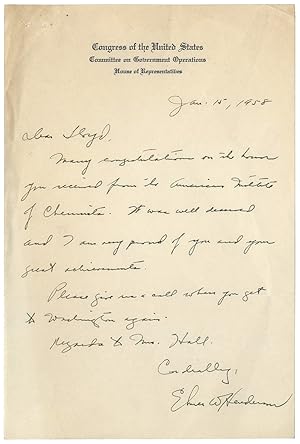 Congress of the United States
Committee on Government Operations
House of Representatives
Jan. 15, 1958
Dear Lloyd,
Many congratulations on the honor
you received from the American Institute
of Chemists. It was well deserved
and I am very proud of you and your
great achievements.
Please give me a call when you get
to Washington again.
Regards to Mrs. Hall.
Cordially,
Elmer W. Henderson